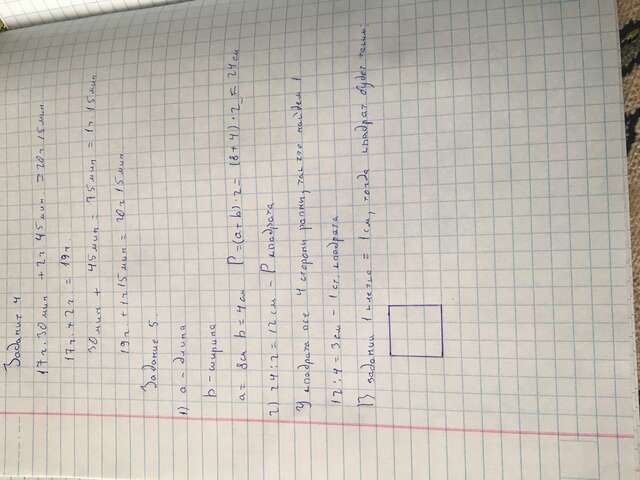 Задание 4
17ч. 30 мин + 2ч 45 мин = 20ч 15 мин.
17ч. + 2ч. = 19ч
30 мин + 45 мин = 75 мин = 1ч 15 мин
19ч + 1ч 15 мин = 20ч 15 мин.
Задание 5.
1) a - длина
b - ширина
a = 8см b = 4см P = (a+b)·2 = (8+4)·2 = 24 см
2) 24:2 = 12 см - P квадрата
У квадрата все 4 стороны равны, так что найдем 1
12:4 = 3 см - 1 ст. квадрата
В задании 1 клетка = 1 см, тогда квадрат будет таким: